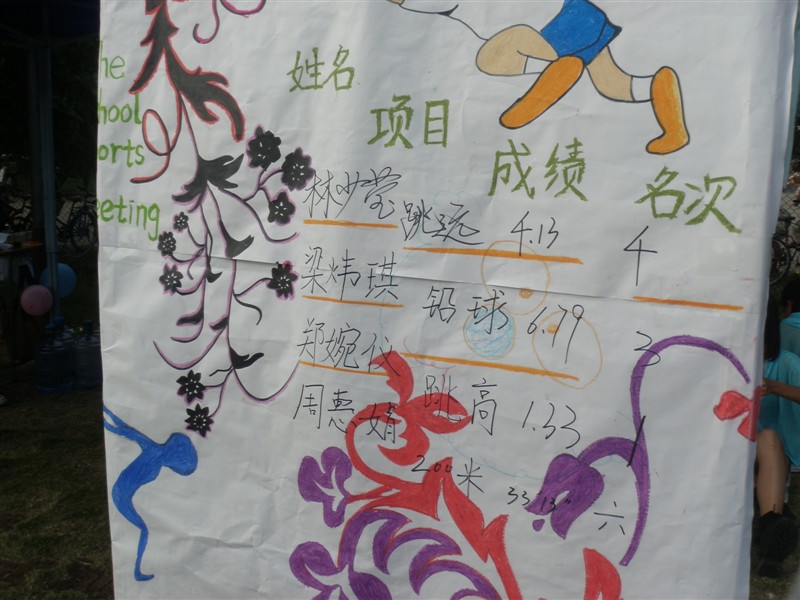 the
school
sports
meeting
姓名 项目 成绩 名次
林少莹 跳远 4.13 4
梁炜琪 铅球 6.79 3
郑婉仪 跳高 1.33 1
周惠娟 200米 33"13 六